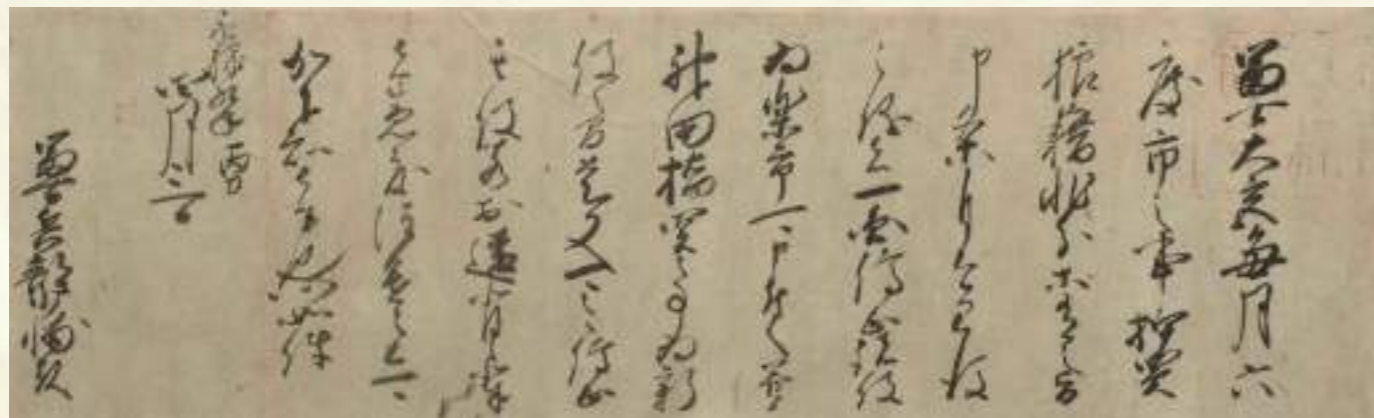 富士大宮毎月六
度市之事押買
狼藉非分等有之旨
申条自今已後
之儀者一円停止諸役
為楽市可申付之并
神田橋関之事為新
役之間是又可令停止
其役若於違背之輩
者急度注進之上可
加下知者也仍如件
永禄九年丙寅
四月三日
富士兵部少輔殿